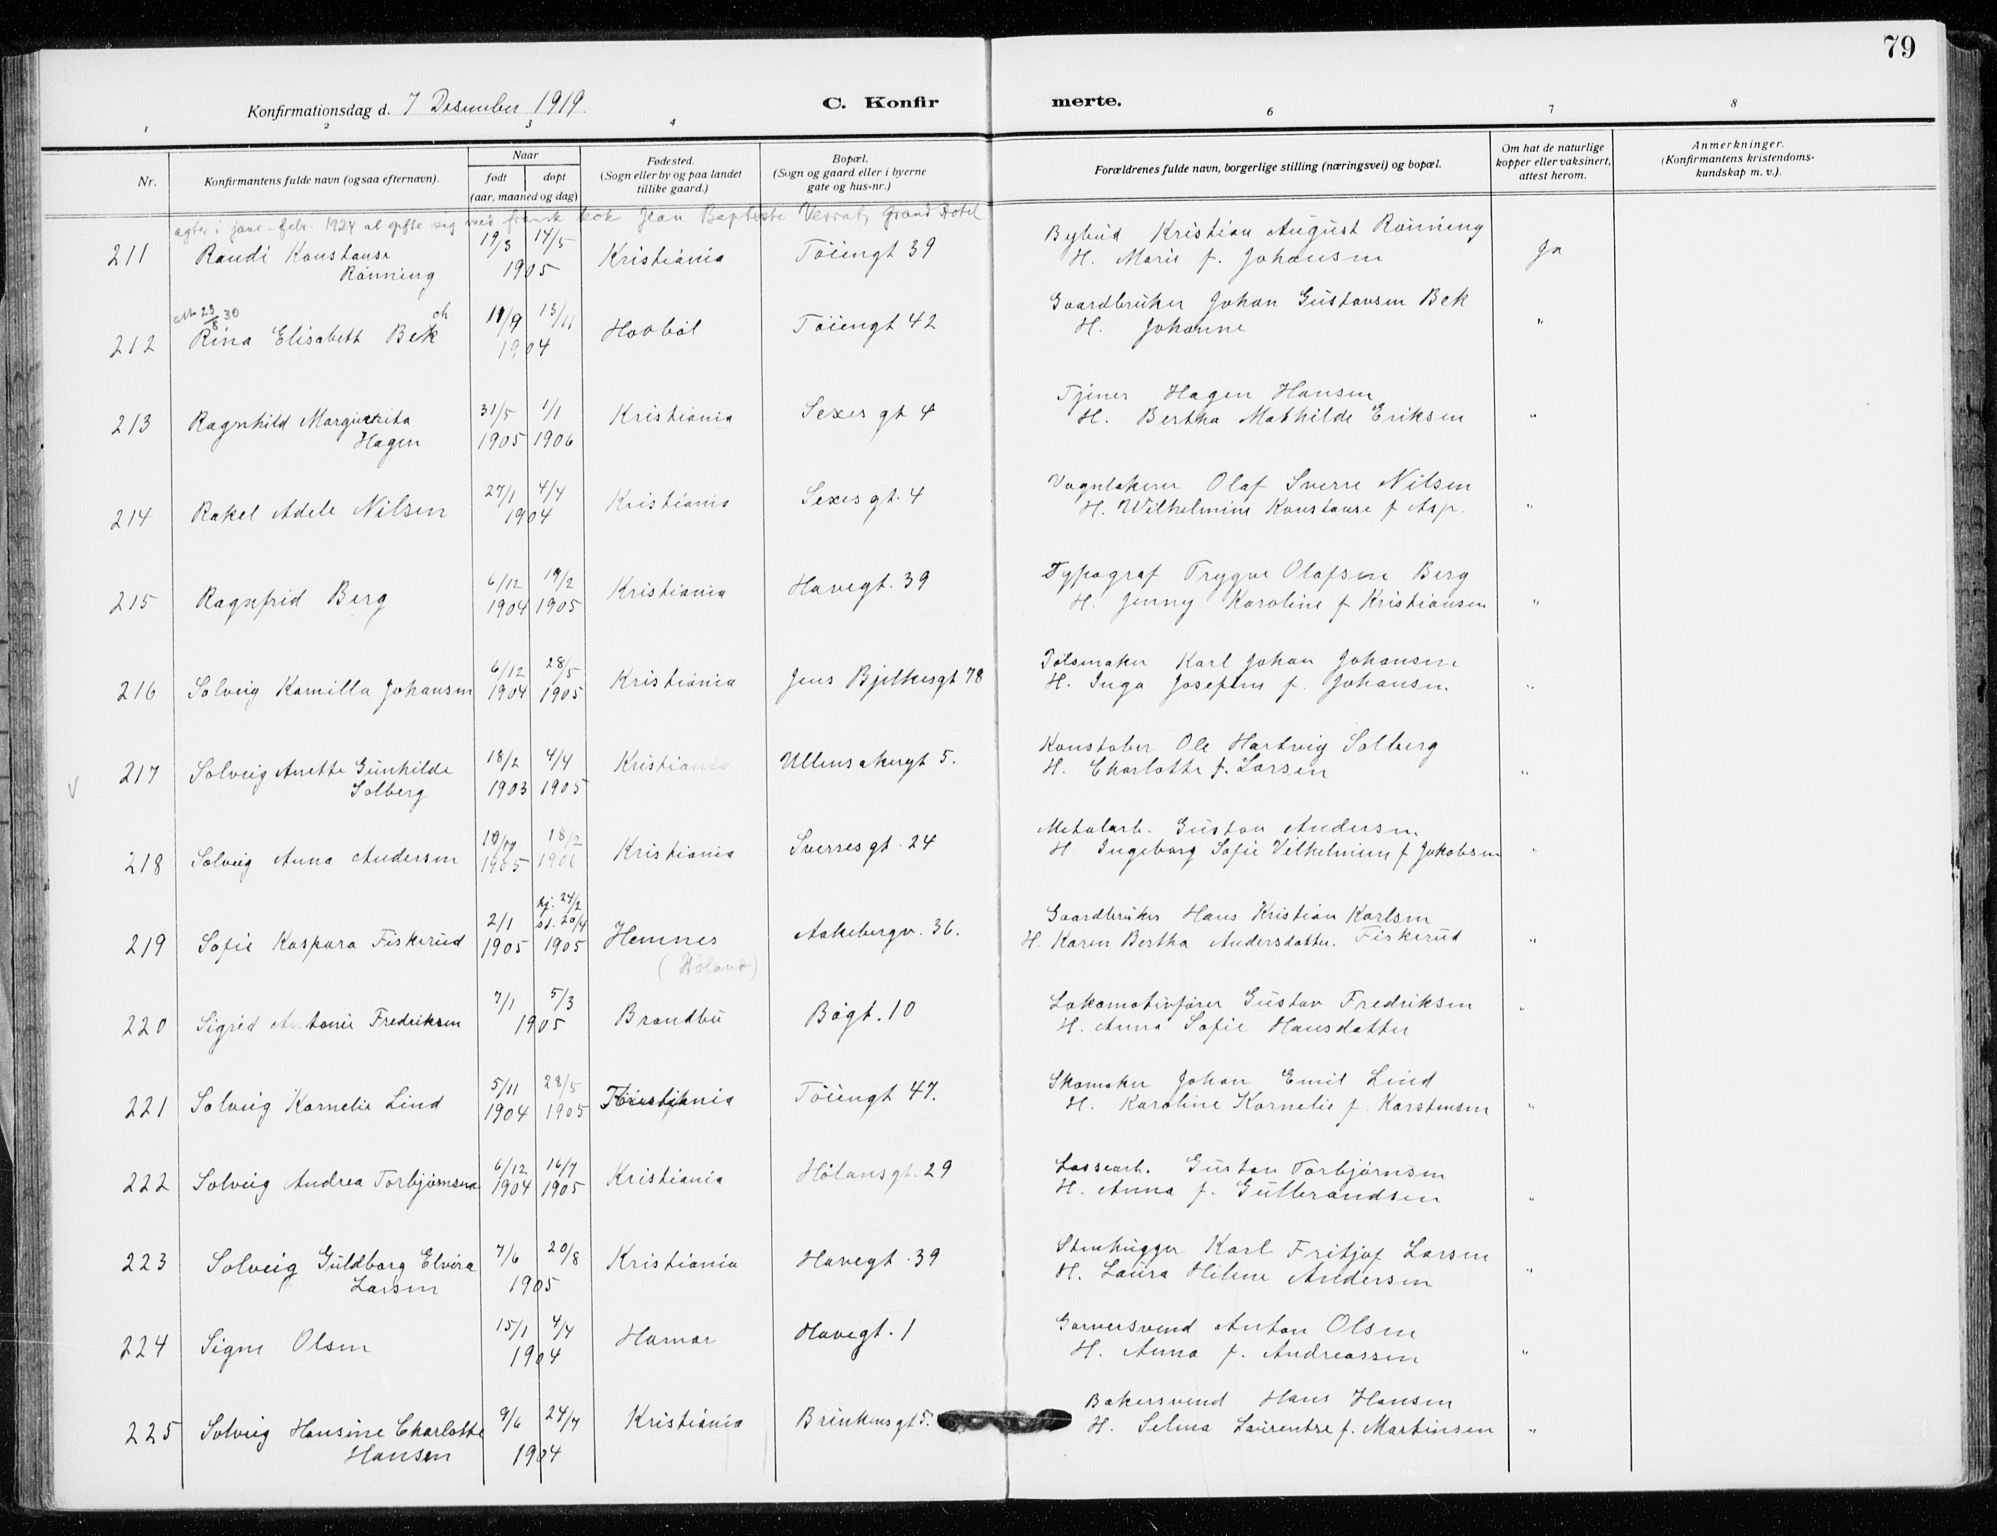 79
Konfirmationsdag d. 7 Desember 1919.
C. Konfir merte.
1 2 3 4 5 6 7 8
Nr.
Konfirmantens fulde navn (ogsaa efternavn).
Naar
født døpt
(aar, maaned og dag)
Fødested.
(Sogn eller by og paa landet
tillike gaard.)
Bopæl.
(Sogn og gaard eller i byerne
gate og hus-nr.)
Forældrenes fulde navn, borgerlige stilling (næringsvei) og bopæl.
Om hat de naturlige
kopper eller vaksinert,
attest herom.
Anmerkninger.
(Konfirmantens kristendoms-
kundskap m. v.).
agter i jan.-febr. 1924 at gifte sig med fransk kok Jean Baptiste Grand Hotel
211 Randi Konstanse 19/3 14/5 Kristiania Töiengt 39 Bybud Kristian August Rønning Ja
Rønning 1905 H. Marie f. Johansen
att. 23/8 30 ch
212 Rina Elisabeth Bek 11/9 13/11 Hobøl Töiengt 42 Gaardbruker Johan Gustavsen Bek "
1904 H. Johanne
213 Ragnhild Margurita 31/5 1/1 Kristiania Sexes gt 4 Tjener Hagen Hansen "
Hagen 1905 1906 H. Bertha Mathilde Eriksen
214 Rakel Adele Nilsen 27/1 4/4 Kristiania Sexes gt. 4 Vognlakerer Olaf Sverre Nilsen "
1904 H. Wilhelmine Konstanse f Asp.
215 Ragnfrid Berg 6/12 19/2 Kristiania Havegt. 39 Typograf Trygve Olafsen Berg "
1904 1905 H. Jenny Karoline f Kristiansen
216 Solveig Kamilla Johansen 6/12 28/5 Kristiania Jens Bjelkesgt 78 Pølsemaker Karl Johan Johansen "
1904 1905 H. Inga Josefine f. Johansen.
217 Solveig Anette Gunhilde 18/2 4/4 Kristiania Ullensakergt 5. Konstabel Ole Hartvig Solberg "
v Solberg 1903 1905 H. Charlotte f. Larsen
218 Solveig Anna Andersen 18/2 Kristiania Sverresgt. 24 Metalarb. Gustav Andersen. "
1905 1906 H. Ingeborg Sofie Vilhelmine f Jakobsen
219 Sofie Kaspara Fiskerud 2/1 hj. 24/2 st. 20/4 Hemnes Aakebergv. 36. Gaardbruker Hans Kristian Karlsen "
1905 1905 (Høland) H. Karen Bertha Andersdatter. Fiskerud
220 Sigrid Antonie Fredriksen 7/1 5/3 Brandbu Bøgt. 10 Lokomotivfører Gustav Fredriksen "
1905 H. Anna Sofie Hansdatter
221 Solveig Kornelie Lind 5/11 28/5 Kristiania Töiengt 47. Skomaker Johan Emil Lind "
1904 1905 H. Karoline Kornelie f. Karstensen
222 Solveig Andrea Torbjørnsen 6/12 16/7 Kristiania Hølansgt. 29 Lossearb. Gustav Torbjørnsen "
1904 1905 H. Anna f. Gulbrandsen
223 Solveig Guldborg Elvira 7/6 20/8 Kristiania Havegt. 39 Stenhugger Karl Fritjof Larsen "
Larsen 1905 H. Laura Hilene Andersen
224 Signe Olsen 15/1 4/4 Hamar Havegt. 1 Garversvend Anton Olsen "
1904 H. Anna f. Andreassen
225 Solveig Hansine Charlotte 9/6 24/7 Kristiania Brinkensgt 5. Bakersvend Hans Hansen "
Hansen 1904 H. Selma Laurentse f. Martinsen